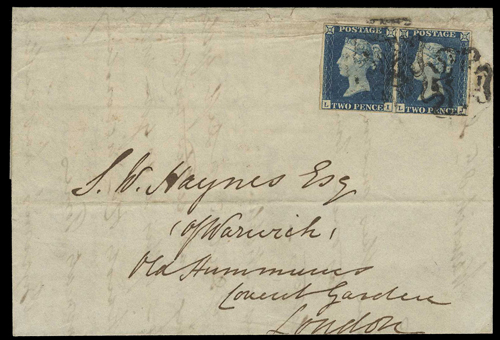 POSTAGE POSTAGE
L TWO PENCE I L TWO PENCE J
S. W. Haynes Esq
(of Warwick)
Old Hummums
Covent Garden
London